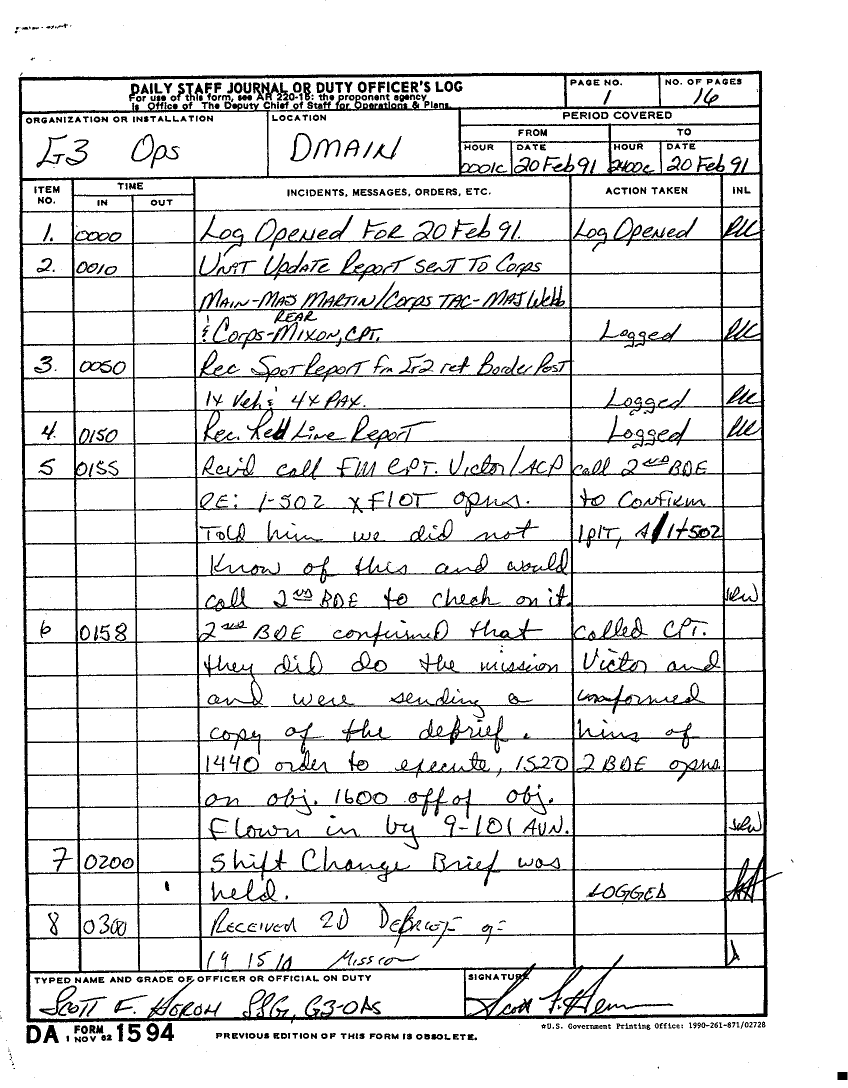 DAILY STAFF JOURNAL OR DUTY OFFICER'S LOG
For use of this form, see AR 220-15: the proponent agency
is Office of The Deputy Chief of Staff for Operations & Plans.
PAGE NO.
1
NO. OF PAGES
16
ORGANIZATION OR INSTALLATION
G3 Ops
LOCATION
DMAIN
PERIOD COVERED
FROM
TO
HOUR
DATE
HOUR
DATE
0001c 20 Feb 91 2400c 20 Feb 91
ITEM NO.
TIME
IN
OUT
INCIDENTS, MESSAGES, ORDERS, ETC.
ACTION TAKEN
INL
1. 0000 Log Opened For 20 Feb 91. Log Opened
2. 0010 Unit Update Report Sent To Corps
Main-Maj Martin/Corps TAC-Maj Webb
REAR
& Corps-Mixon, CPT. Logged
3. 0050 Rec Spot Report fm G2 ref Border Post
1x Veh & 4x PAX. Logged
4. 0150 Rec. Red Line Report Logged
5 0155 Rcv'd call FM CPT. Victor/ACP call 2nd BDE
RE: 1-502 xFLOT opns. to confirm
Told him we did not 1plt, A/1-502
know of this and would
call 2nd BDE to check on it.
6 0158 2nd BDE confirmed that called CPT.
they did do the mission Victor and
and were sending a informed
copy of the debrief. him of
1440 order to execute, 1520 2 BDE opns
on obj. 1600 off of obj.
Flown in by 9-101 AVN.
7 0200 Shift Change Brief was
held. LOGGED
8 0300 Received 2D Debrief of
191510 Mission
TYPED NAME AND GRADE OF OFFICER OR OFFICIAL ON DUTY
Scott F. Heron SSG, G3-OPS
SIGNATURE
Scott F. Heron
DA FORM 1594
1 NOV 62
PREVIOUS EDITION OF THIS FORM IS OBSOLETE.
☆U.S. Government Printing Office: 1990-261-871/02728